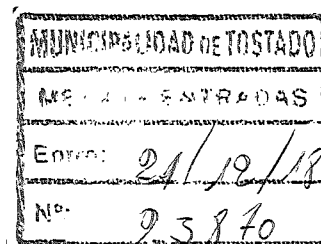 MUNICIPALIDAD DE TOSTADO
ENTRADAS
Entró: 21/12/18
Nº: 23870